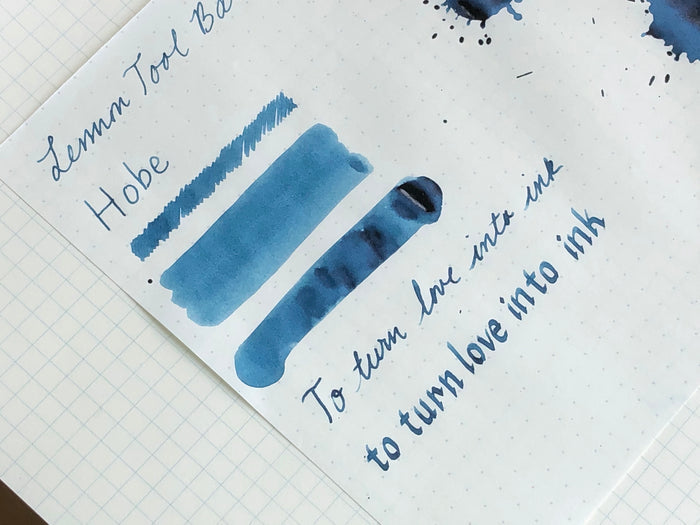 Lennon Tool Ba
Hobe
To turn love into ink
to turn love into ink